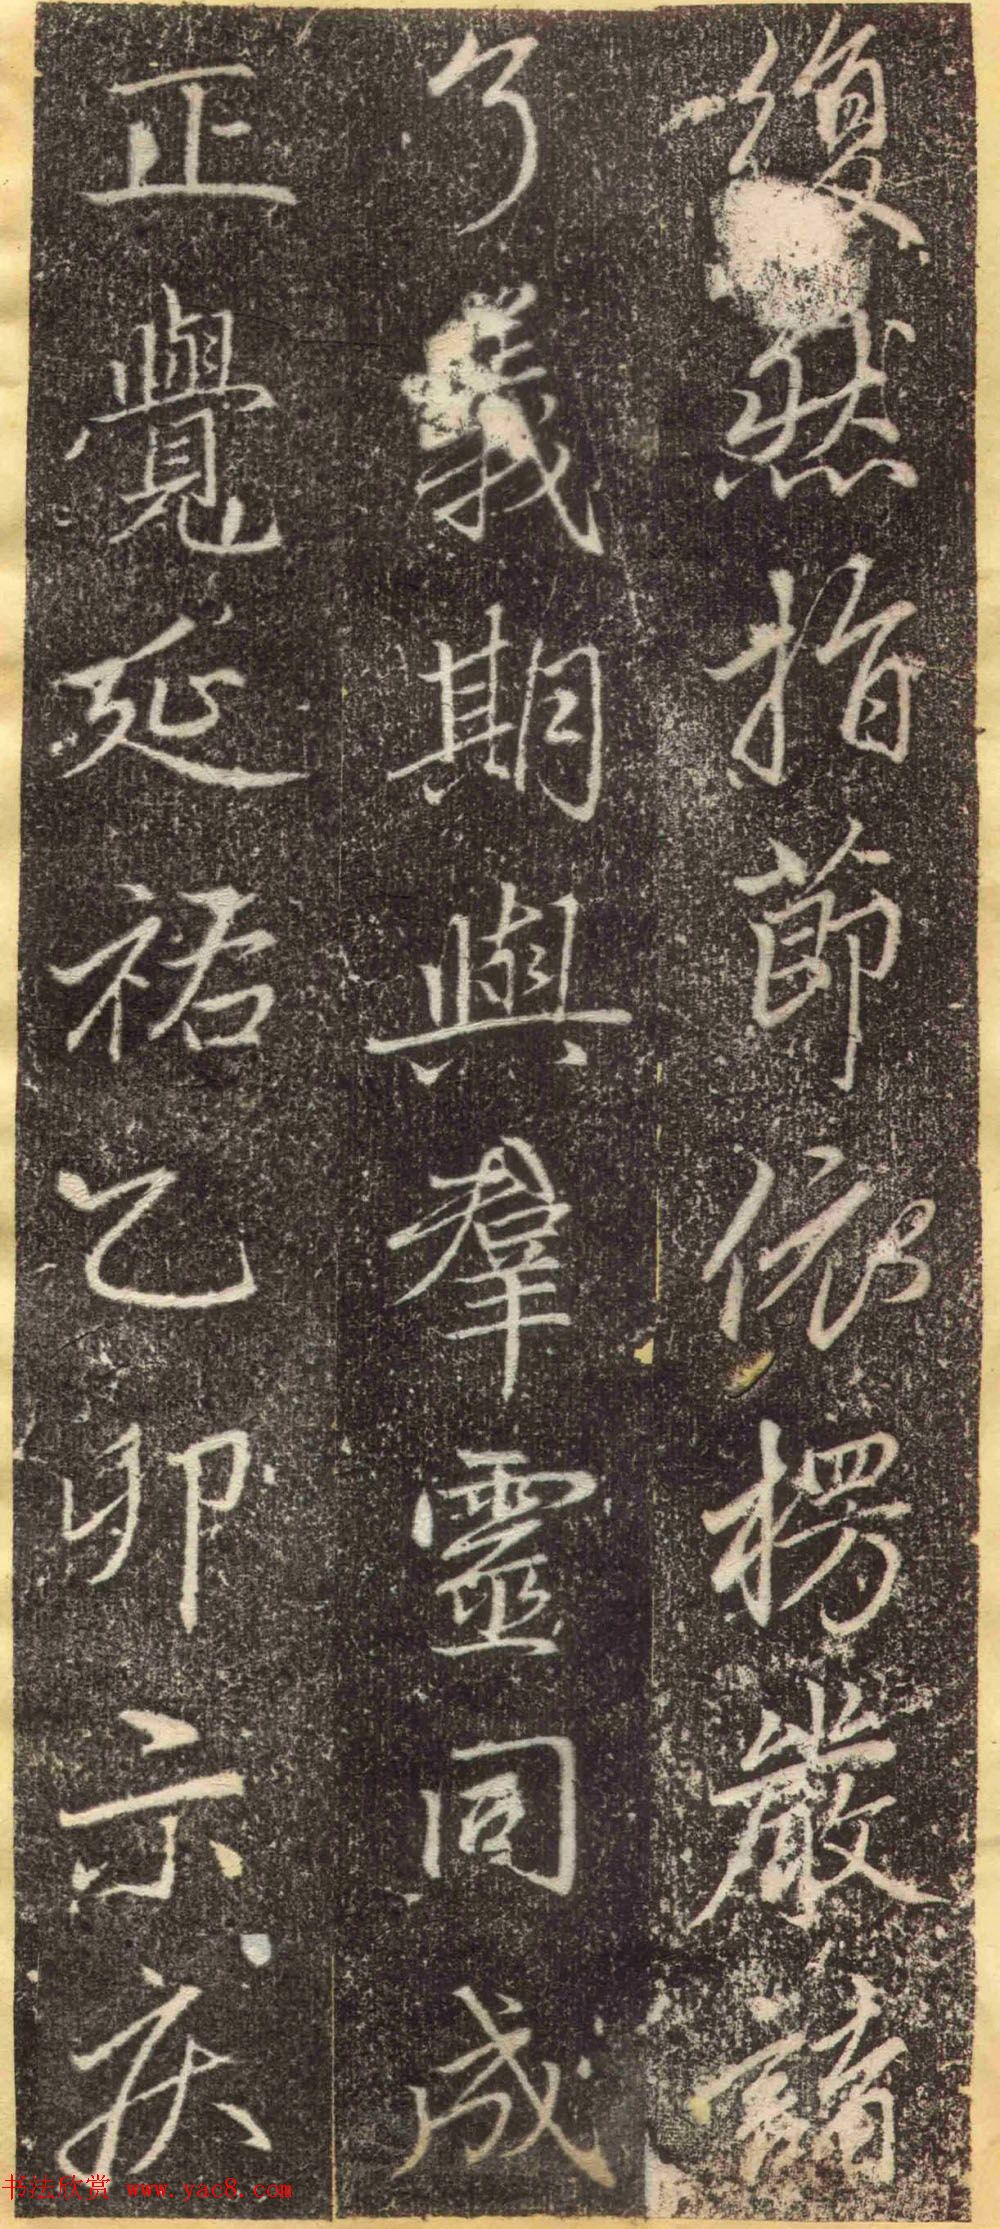 復然指節依楞嚴
了義期與羣靈同成
正覺延祐乙卯示疾
书法欣赏 www.yac8.com